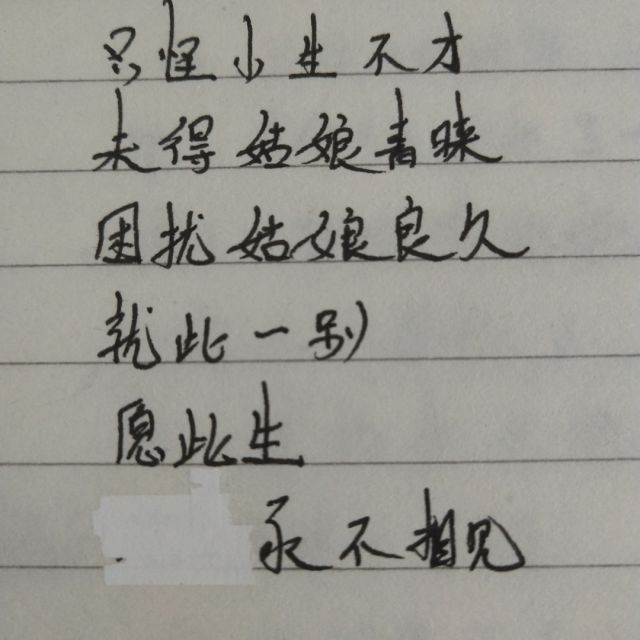 只怪小生不才
未得姑娘青睐
困扰姑娘良久
就此一别
愿此生
永不相见